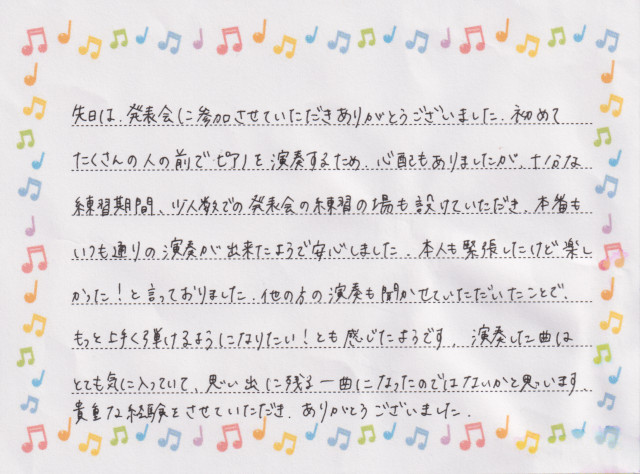 先日は、発表会に参加させていただきありがとうございました。初めて
たくさんの人の前でピアノを演奏するため、心配もありましたが、十分な
練習期間、少人数での発表会の練習の場も設けていただき、本番も
いつも通りの演奏が出来たようで安心しました。本人も緊張したけど楽し
かった！と言っておりました。他の方の演奏も聞かせていただいたことで、
もっと上手く弾けるようになりたい！とも感じたようです。演奏した曲は
とても気に入っていて、思い出に残る一曲になったのではないかと思います。
貴重な経験をさせていただき、ありがとうございました。